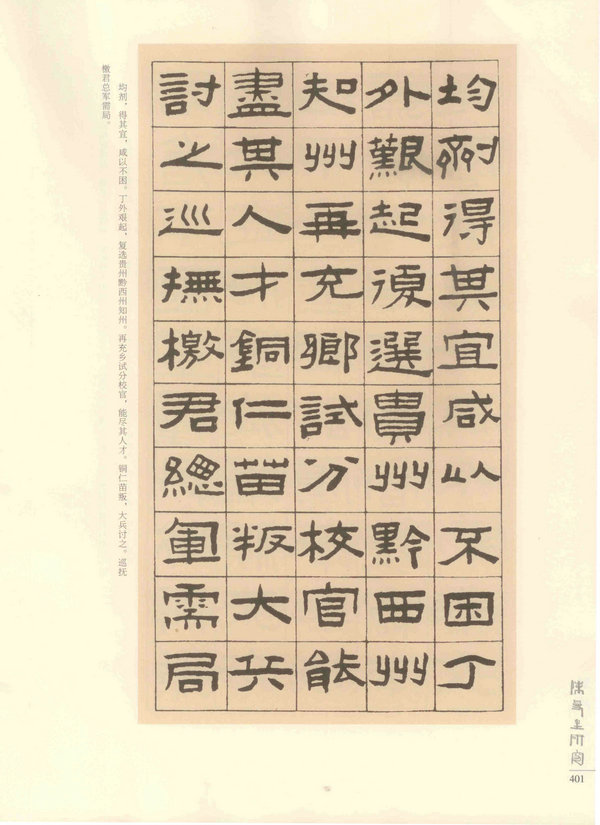 均劑得其宜咸以不困丁
外艱起復選貴州黔西州
知州再充鄉試分校官能
盡其人才銅仁苗叛大兵
討之巡撫檄君總軍需局
均剂，得其宜，咸以不困。丁外艰起，复选贵州黔西州知州。再充乡试分校官，能尽其人才。铜仁苗叛，大兵讨之。巡抚
檄君总军需局。
401